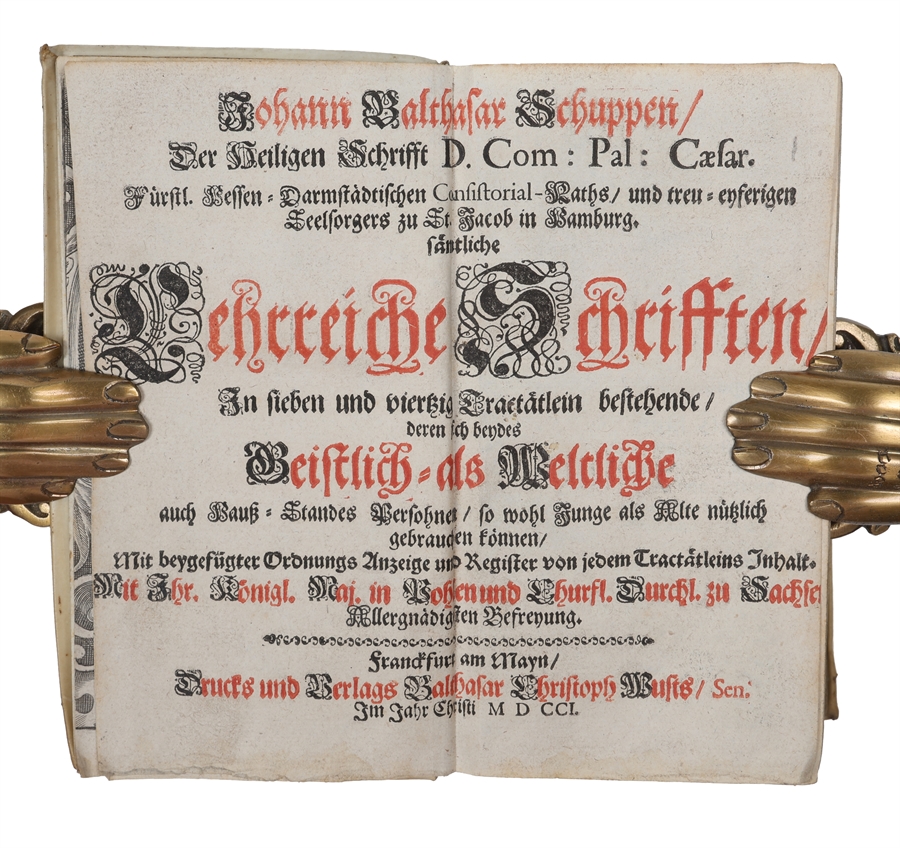 Johann Balthasar Schuppen/
Der Heiligen Schrifft D. Com: Pal: Cæsar.
Fürstl. Hessen-Darmstädtischen Consistorial-Raths/ und treu-eyferigen
Seelsorgers zu St. Jacob in Hamburg.
sämtliche
Lehrreiche Schrifften/
In sieben und viertzig Tractätlein bestehende/
deren sich beydes
Geistlich-als Weltliche
auch Hauß-Standes Persohnen/ so wohl Junge als Alte nützlich
gebrauchen können/
Mit beygefügter Ordnungs Anzeige und Register von jedem Tractätleins Inhalt.
Mit Ihr. Königl. Maj. in Pohlen und Churfl. Durchl. zu Sachsen
Allergnädigsten Befreyung.
Franckfurt am Mayn/
Drucks und Verlags Balthasar Christoph Wusts/ Sen.
Im Jahr Christi M D CCI.